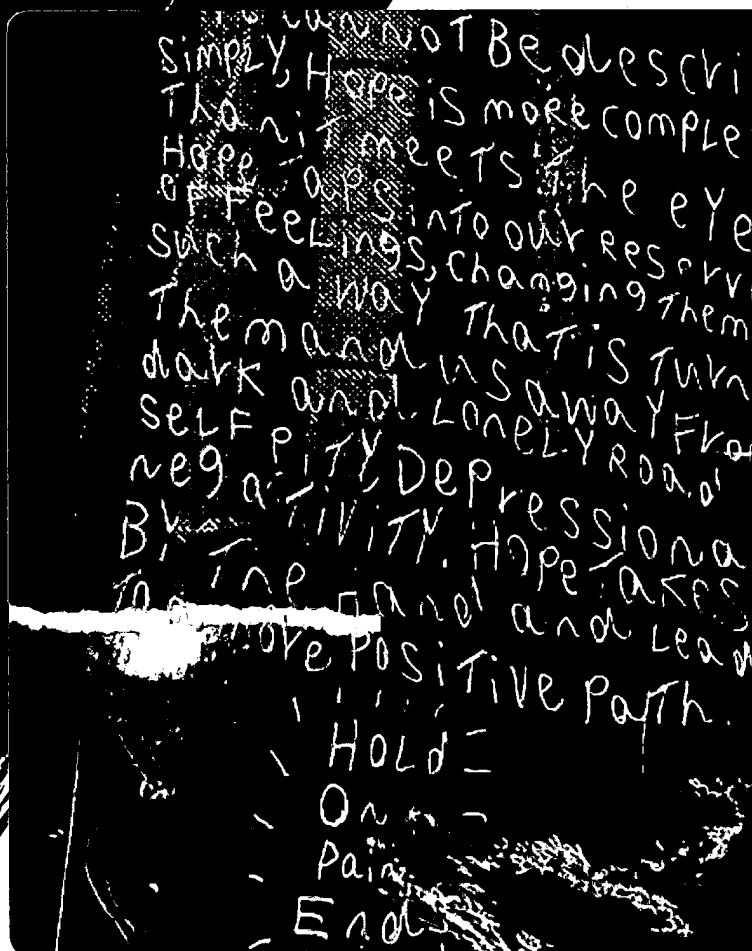 cannot Be descri
Simply, Hope is more comple
Than it meets The eye
Hope Taps into our reserv
of Feelings, changing Them
such a way That is Turn
Them and us away Fro
dark and Lonely Road
Self pity, Depression a
negativity. Hope Takes
By The hand and Lead
To a more Positive Path.
Hold
On
Pain
End